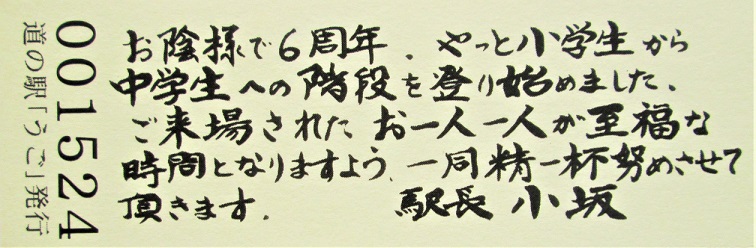 お陰様で6周年．やっと小学生から
中学生への階段を登り始めました．
ご来場された お一人一人が至福な
時間となりますよう、一同精一杯努めさせて
頂きます．　駅長 小坂
001524
道の駅「うご」発行